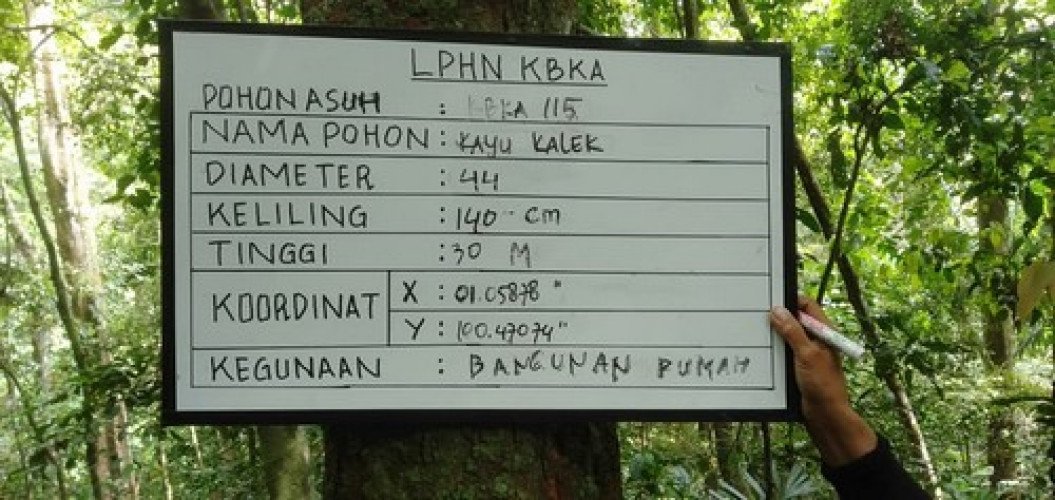 LPHN KBKA
POHON ASUH : KBKA 115
NAMA POHON : KAYU KALEK
DIAMETER : 44
KELILING : 140 cm
TINGGI : 30 M
KOORDINAT X : 01.05878 "
Y : 100.47074"
KEGUNAAN : BANGUNAN RUMAH